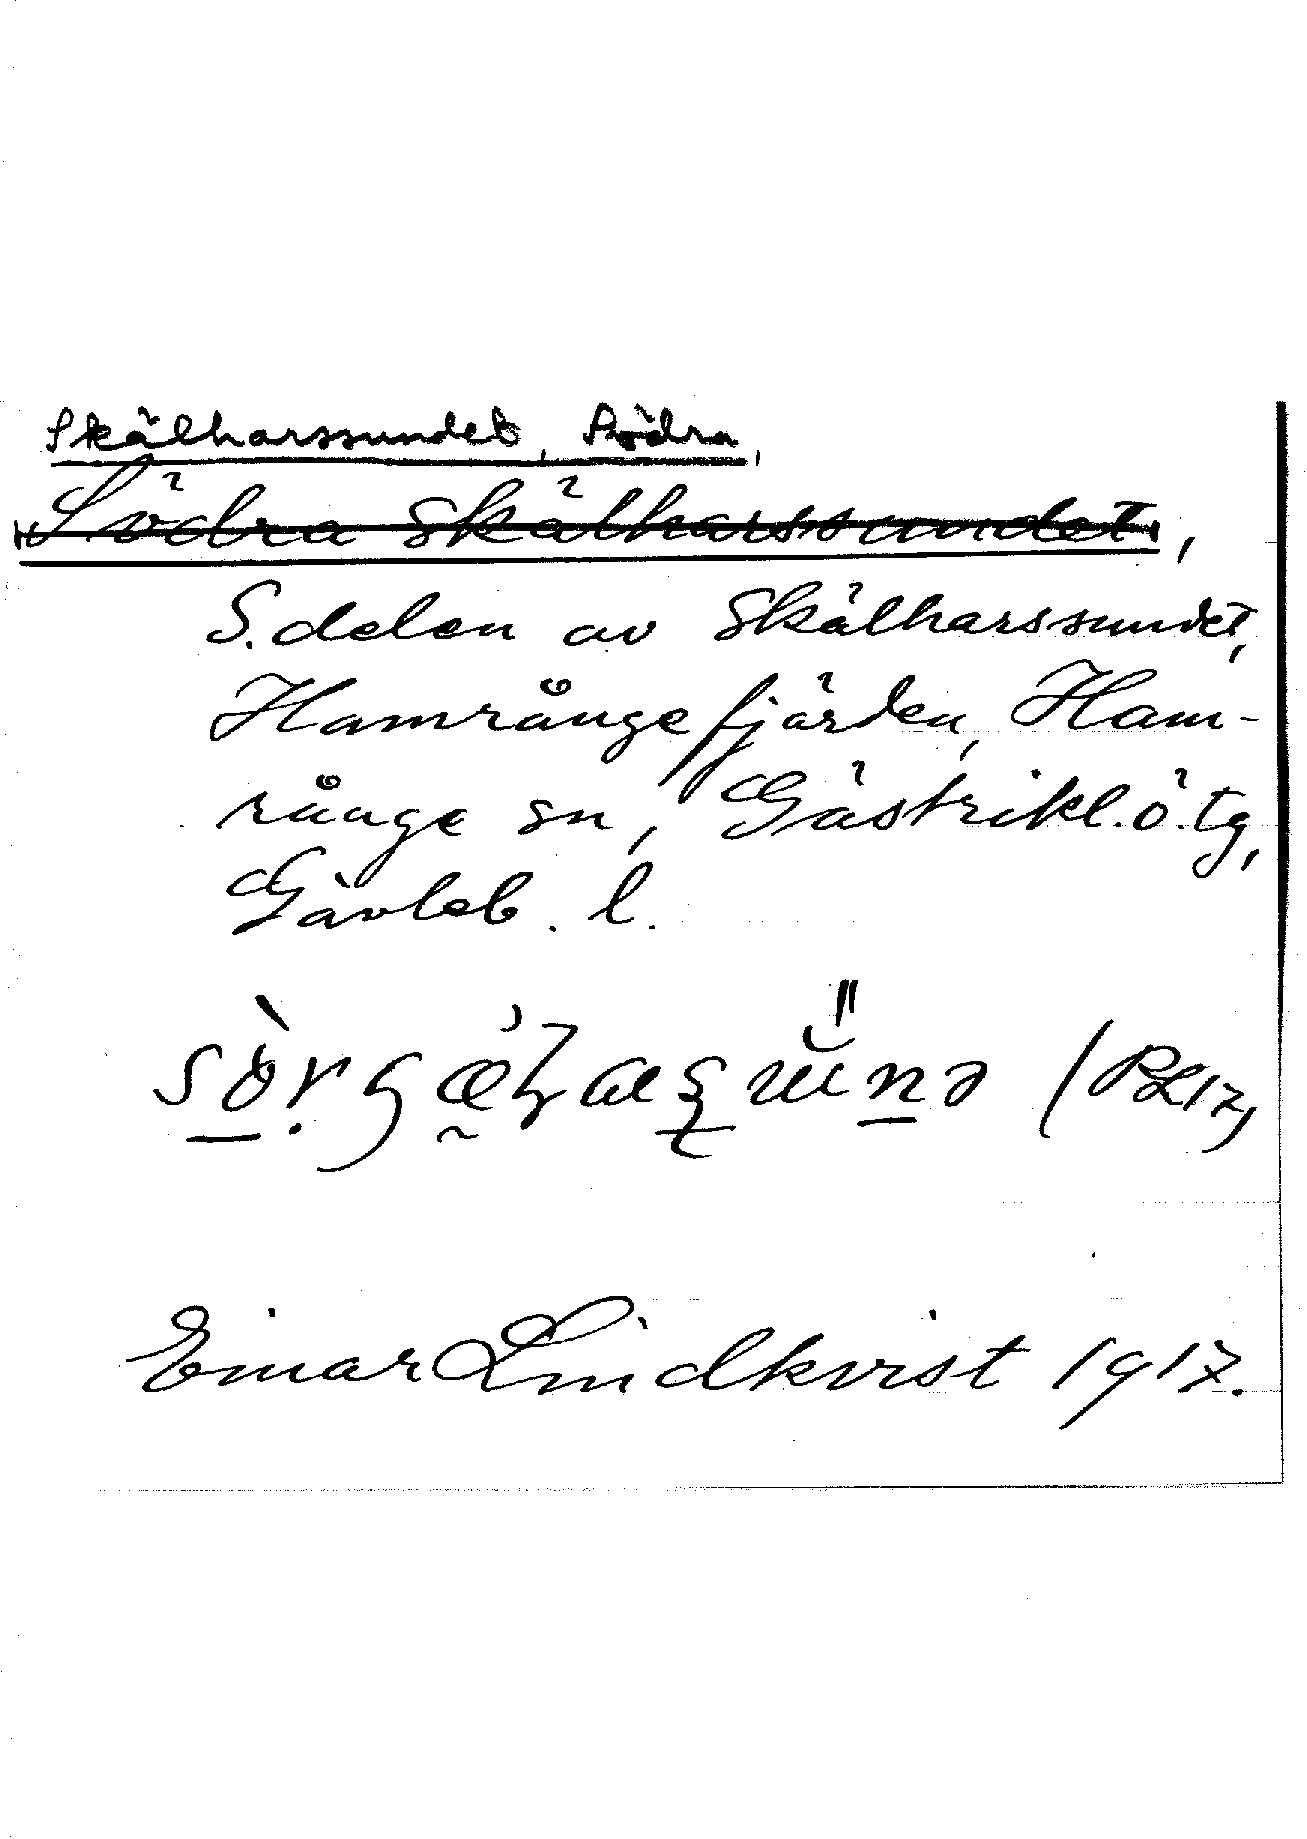 Skälharssundet, Södra,
Södra Skälharssundet,
S. delen av Skälharssundet,
Hamrångefjärden, Ham-
rånge sn, Gästrikl. ö. tg,
Gävleb. l.
Einar Lindkvist 1917.